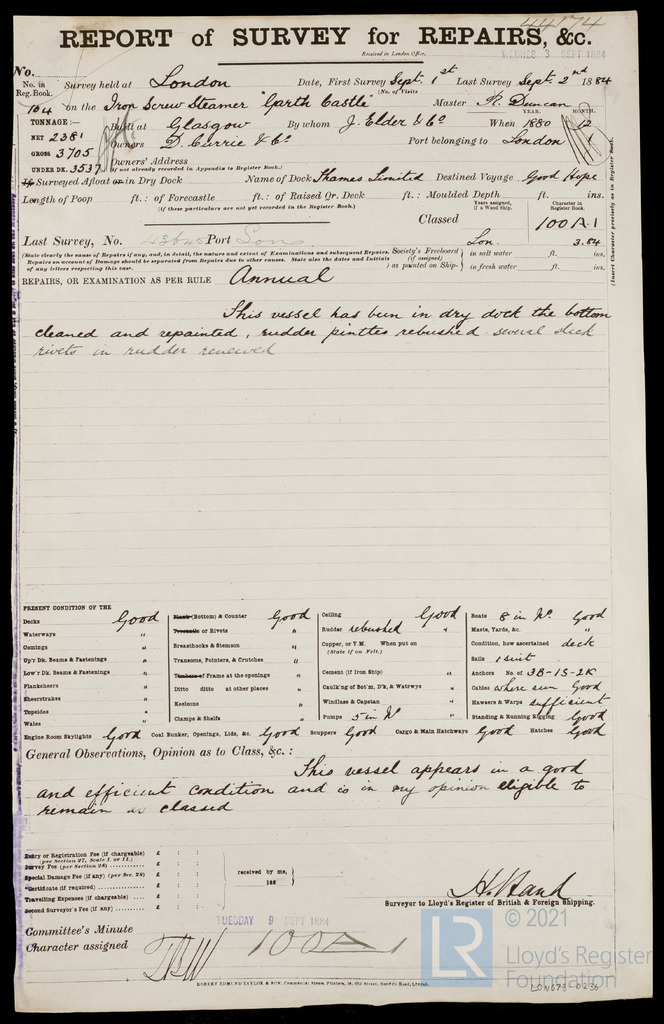 44174
REPORT of SURVEY for REPAIRS, &c.
Received in London Office, WEDNES 3 SEPT 1884
No.
No. in Reg. Book. Survey held at London Date, First Survey Sept. 1st Last Survey Sept. 2nd 1884
(No. of Visits
164 on the Iron Screw Steamer "Garth Castle" Master R. Duncan
TONNAGE:— Built at Glasgow By whom J. Elder & Co When 1880 YEAR. MONTH. 12
NET 2381 Owners D. Currie & Co Port belonging to London
GROSS 3705 Owners' Address
UNDER DK. 3537 (if not already recorded in Appendix to Register Book.)
If Surveyed Afloat or in Dry Dock Name of Dock Thames Limited Destined Voyage Good Hope
Length of Poop ft.: of Forecastle ft.: of Raised Qr. Deck ft.: Moulded Depth ft. ins.
(If these particulars are not yet recorded in the Register Book.)
Years assigned, if a Wood Ship. Character in Register Book.
Classed 100 A.1
Last Survey, No. Port Lon Lon. 3.84
(State clearly the cause of Repairs if any, and, in detail, the nature and extent of Examinations and subsequent Repairs.
Repairs on account of Damage should be separated from Repairs due to other causes. State also the dates and Initials
of any letters respecting this case.
Society's Freeboard (if assigned) as painted on Ship- in salt water ft. ins.
in fresh water ft. ins.
(Insert Character precisely as in Register Book.
REPAIRS, OR EXAMINATION AS PER RULE Annual
This vessel has been in dry dock the bottom
cleaned and repainted, rudder pintles rebushed several slack
rivets in rudder renewed
PRESENT CONDITION OF THE
Decks Good
Waterways "
Comings "
Up'r Dk. Beams & Fastenings "
Low'r Dk. Beams & Fastenings "
Planksheers "
Sheerstrakes "
Topsides "
Wales "
Plank (Bottom) & Counter Good
Treenails or Rivets "
Breasthooks & Stemson "
Transoms, Pointers, & Crutches "
Timbers or Frame at the openings "
Ditto ditto at other places "
Keelsons "
Clamps & Shelfs "
Ceiling Good
Rudder rebushed "
Copper, or Y.M. When put on
(State if on Felt.)
Cement (if Iron Ship) "
Caulk'ng of Bot'm, D'k, & Watrwys "
Windlass & Capstan "
Pumps 5 in No "
Boats 8 in No. Good
Masts, Yards, &c. "
Condition, how ascertained deck
Sails 1 suit
Anchors No. of 3B-1S-2K
Cables where seen Good
Hawsers & Warps sufficient
Standing & Running Rigging Good
Engine Room Skylights Good Coal Bunker, Openings, Lids, &c. Good Scuppers Good Cargo & Main Hatchways Good Hatches Good
General Observations, Opinion as to Class, &c.:
This vessel appears in a good
and efficient condition and is in my opinion eligible to
remain as classed
Entry or Registration Fee (if chargeable) £ : :
(per Section 27, Scale I. or II.)
Survey Fee (per Section 28) £ : :
Special Damage Fee (if any) (per Sec. 28) £ : :
Certificate (if required) £ : :
Travelling Expenses (if chargeable) £ : :
Second Surveyor's Fee (if any) £ : :
received by me,
188
H. Hand
Surveyor to Lloyd's Register of British & Foreign Shipping.
TUESDAY 9 SEPT 1884
Committee's Minute
Character assigned 100A1
ROBERT EDMUND TAYLOR & SON, Commercial Steam Printers, 19, Old Street, Goswell Road, London.
LR
© 2021
Lloyd's Register
Foundation
LON673-0236